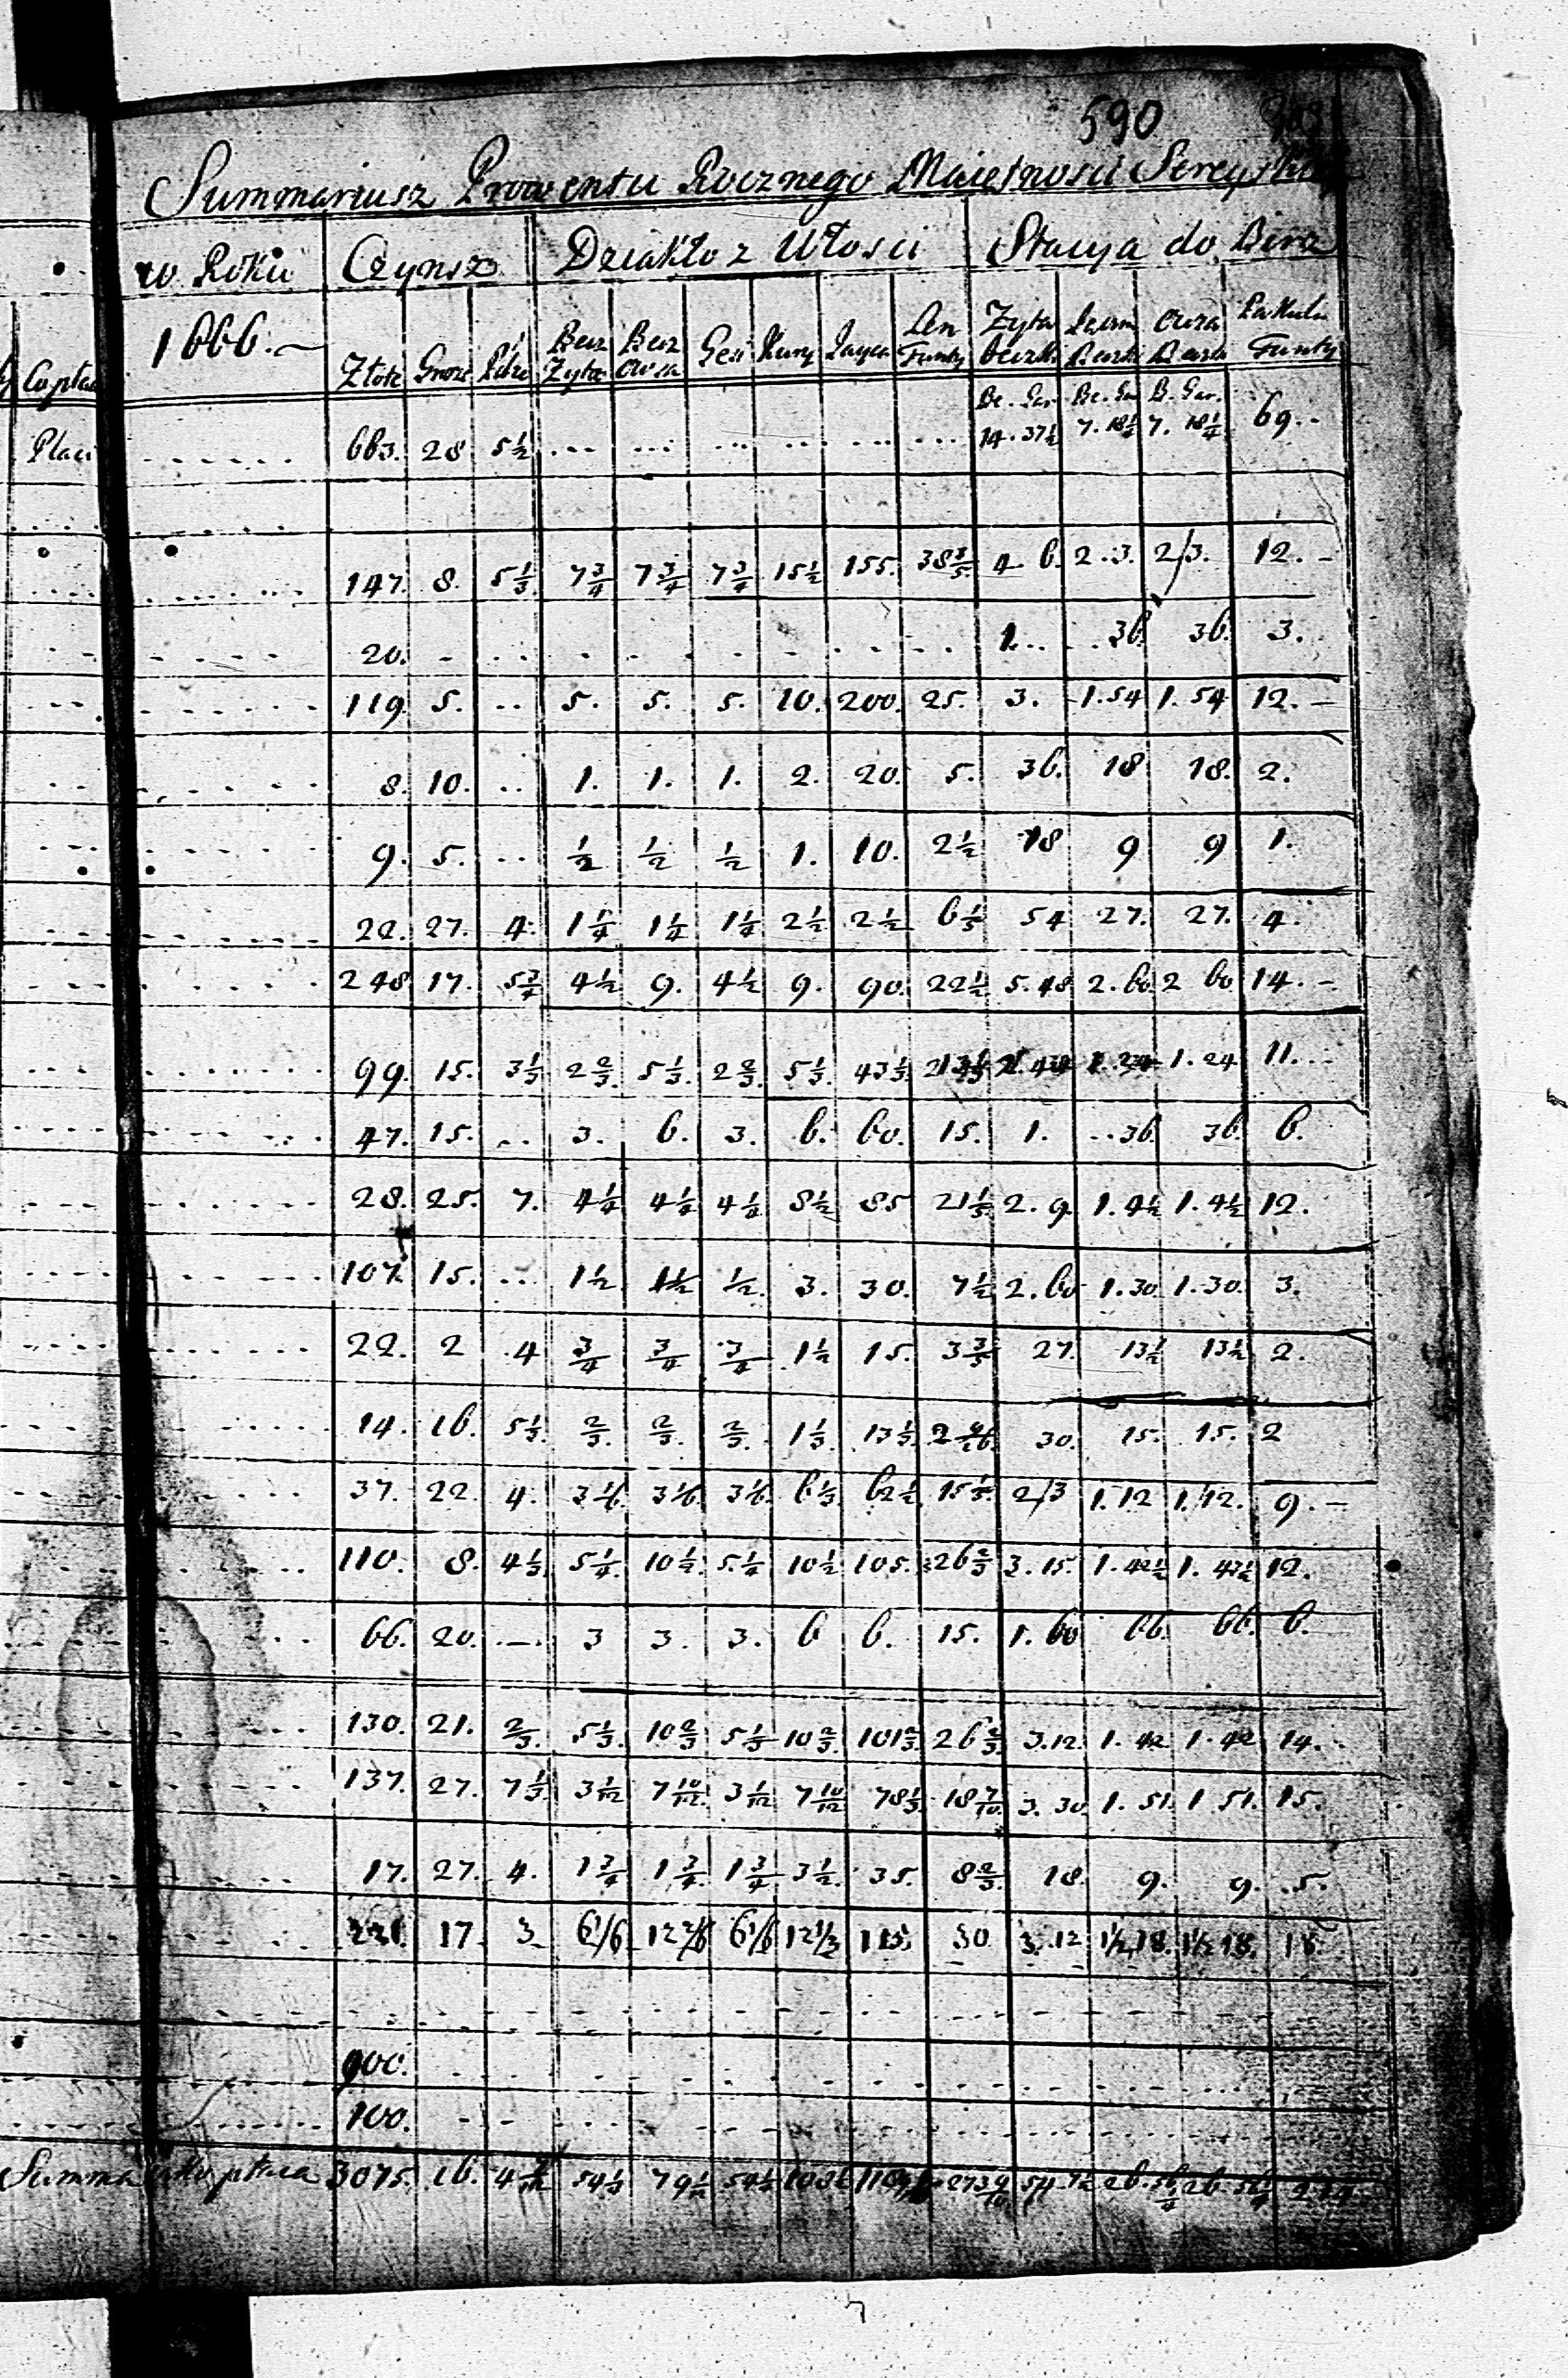 590
Summariusz Prowentu Rocznego Maiętnosci Sereyskiey
w Roku Czynsz Dziakło z Włosci Stacya do Birż
1666. Złote Grosze Becz Żyta Becz Owsa Gęsi Kury Jayca Len Funty Zyta beczki Owsa Pakula Funty
Be. Gar. Be. Ga B. Gar.
Płaci 663. 28 5½ 14. 37½ 7. 18¼ 7. 18¼ 69.
147. 8. 5⅓ 7¾ 7¾ 7¾ 15½ 155. 38⅗ 4. 6. 2. 3. 2/3. 12.
20. 1. 36. 36. 3.
119. 5. 5. 5. 5. 10. 200. 25. 3. 1. 54 1. 54 12.
8. 10. 1. 1. 1. 2. 20. 5. 36. 18 18. 2.
9. 5. ½ ½ ½ 1. 10. 2½ 18 9 9 1.
22. 27. 4. 1¼ 1¼ 1¼ 2½ 2½ 6⅕ 54 27. 27. 4.
248 17. 4½ 9. 4½ 9. 90. 22½ 5. 48 2. 60 2 60 14.
99. 15. 3⅓ 2⅔ 5⅓ 2⅔ 5⅓ 43⅓ 1. 24 11.
47. 15. 3. 6. 3. 6. 60. 15. 1. 36. 36. 6.
28. 25. 7. 4¼ 4¼ 4¼ 8½ 85 21⅕ 2. 9 1. 4½ 1. 4½ 12.
107. 15. 1½ 1½ ½ 3. 30. 7½ 2. 60 1. 30 1. 30. 3.
22. 2 4 ¾ ¾ ¾ 1½ 15. 3⅗ 27. 13½ 13½ 2.
14. 16. 5⅓ ⅔ ⅔ ⅔ 1⅓ 13⅓ 30. 15. 15. 2
37. 22. 4. 3⅙ 3⅙ 3⅙ 6⅓ 62½ 15⅕ 2/3 1. 12 1. 12. 9.
110. 8. 4⅓ 5¼ 10½ 5¼ 10½ 105. 3. 15. 1. 42½ 1. 42½ 12.
66. 20. 3 3. 3. 6 6. 15. 1. 60 66. 66. 6.
130. 21. ⅔ 5⅓ 10⅔ 5⅓ 10⅔ 101⅔ 26⅔ 3. 12. 1. 42 1. 42 14.
137. 27. 7⅓ 3 1/12 7 10/12 3 1/12 7 10/12 78⅓ 18 7/10 3. 30. 1. 51. 1 51. 15.
17. 27. 4. 1¾ 1¾ 1¾ 3½ 35. 8⅔ 18. 9. 9. 5.
17 3 6 1/6 12 2/6 6 1/6 12 1/3 30 3. 12 1½ 18. 1½ 18. 18
900.
100.
Summa 3075. 16. 79½